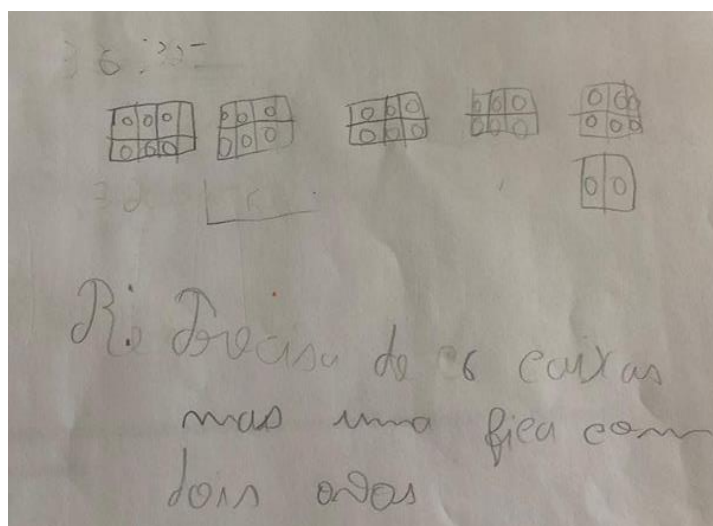 R: Precisa de 6 caixas
mas uma fica com
dois ovos